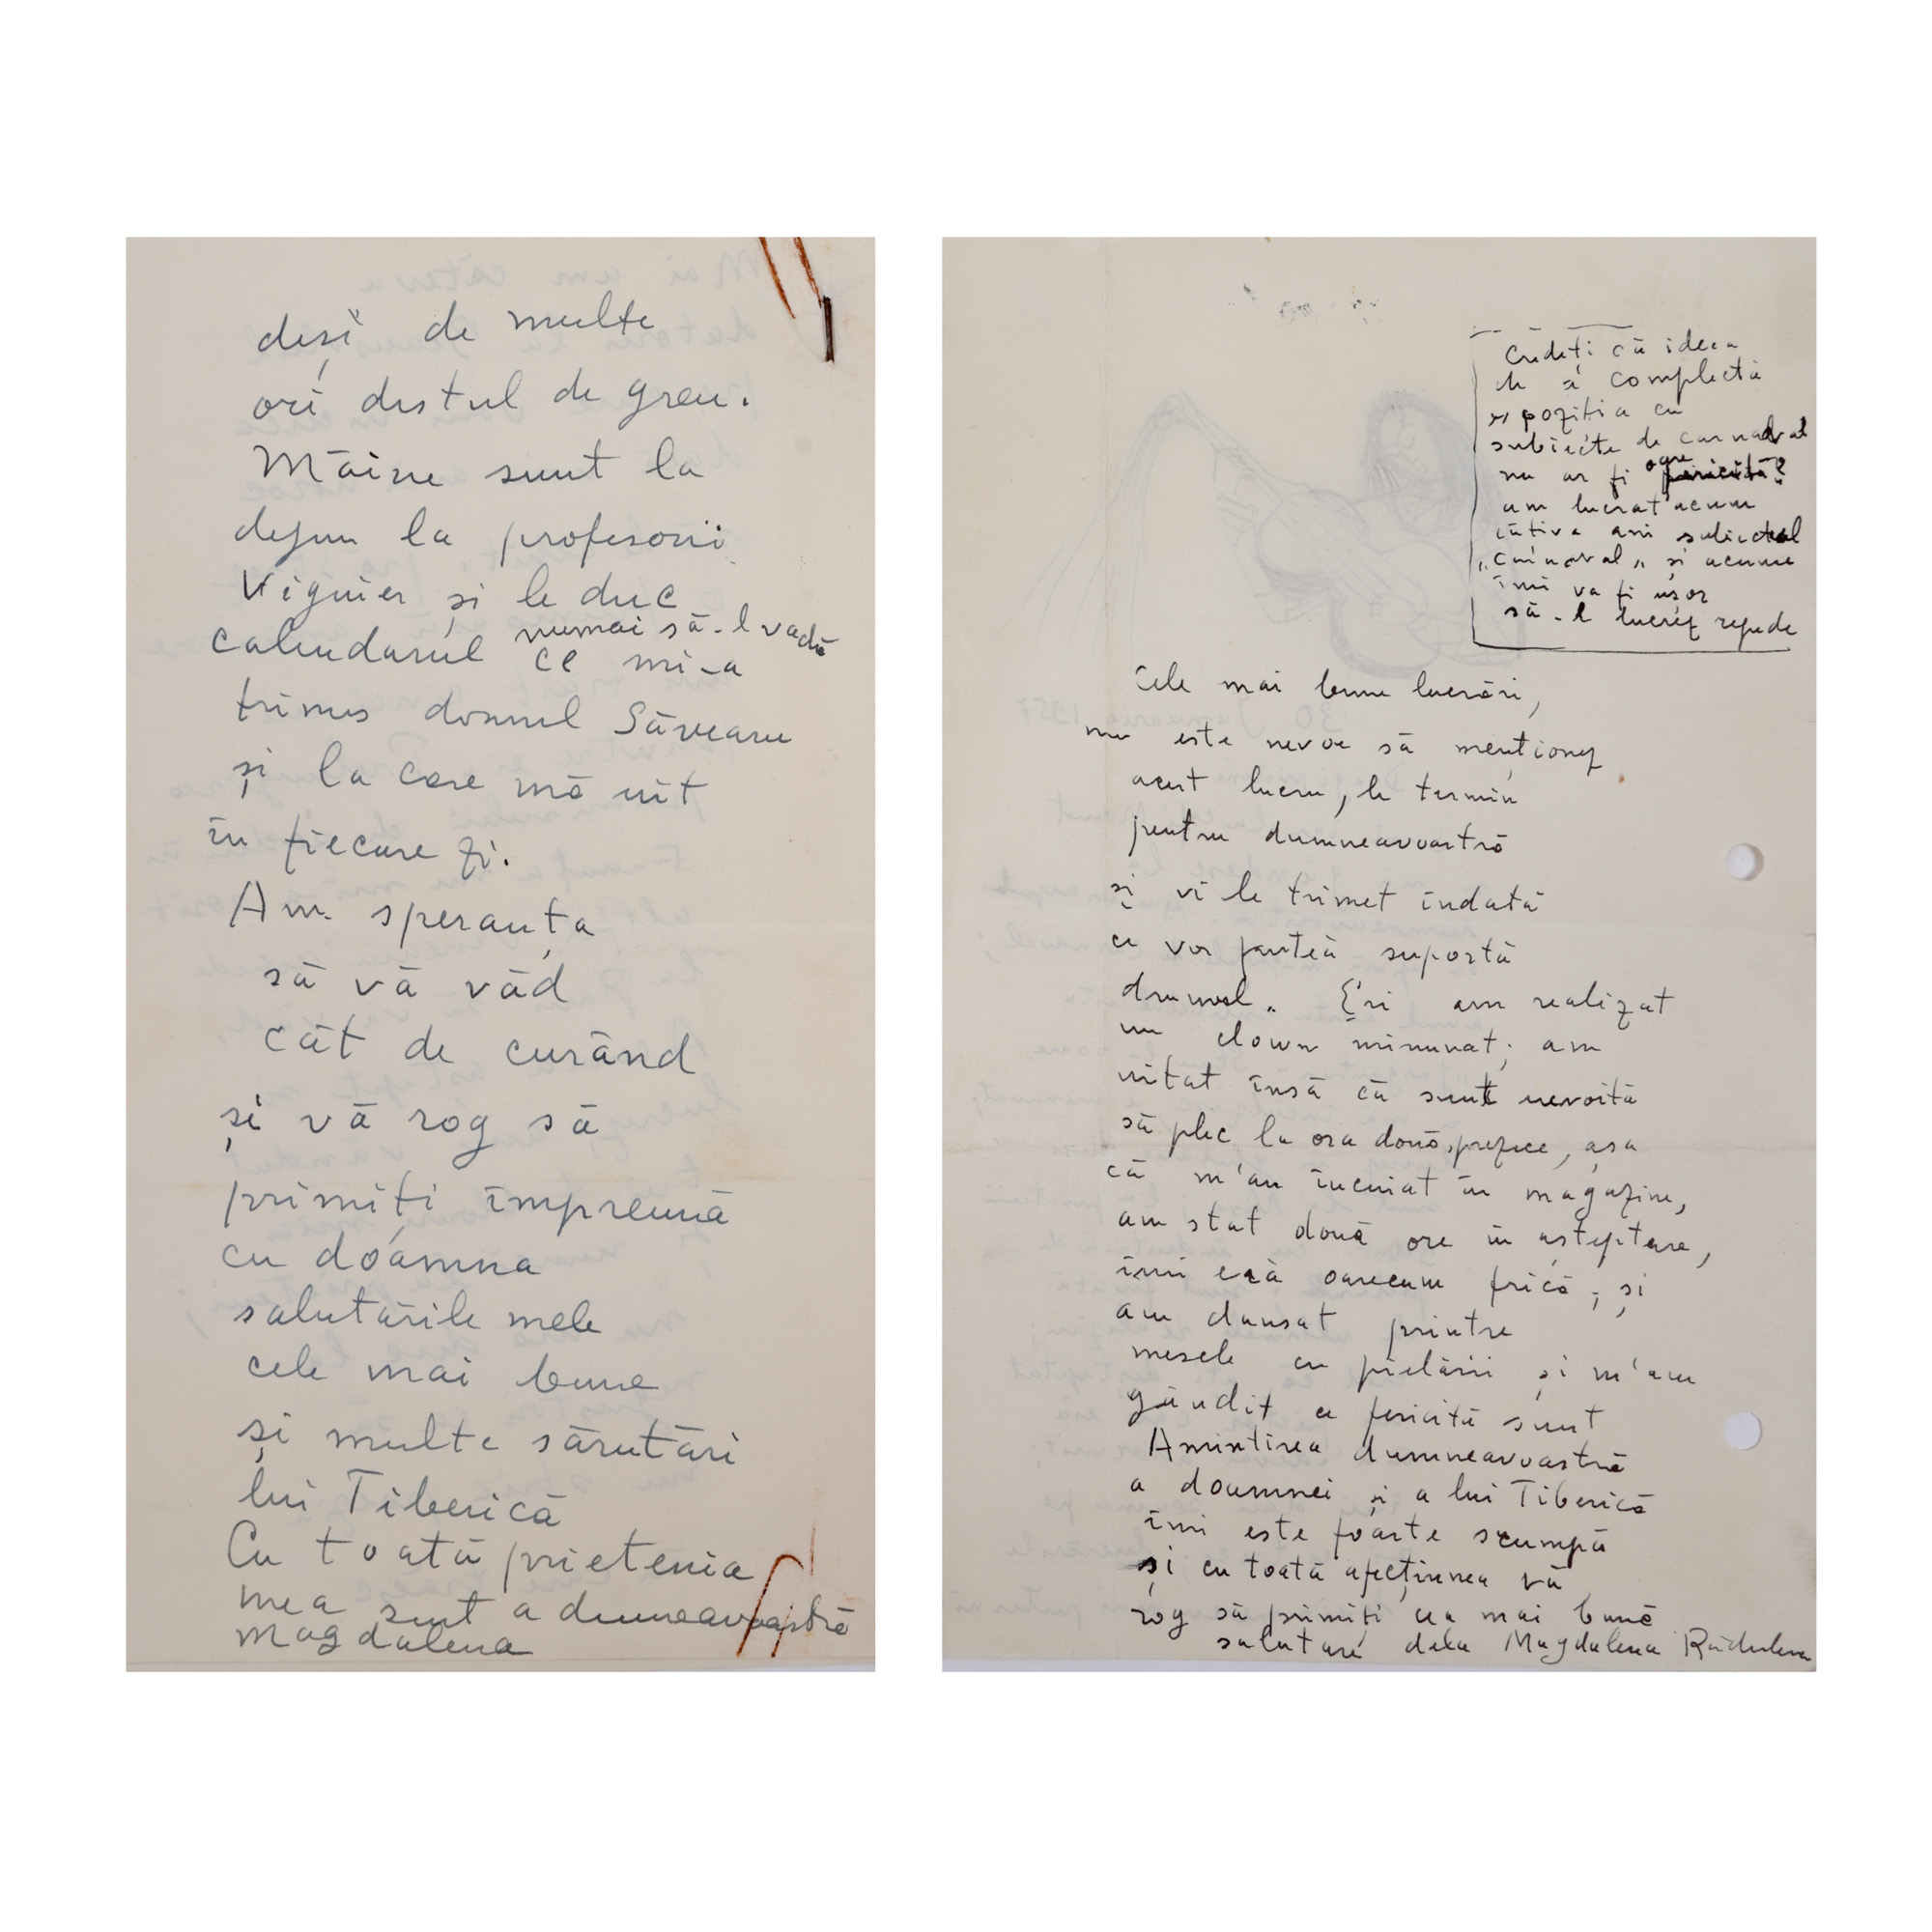 deși de multe
ori destul de greu.
Mâine sunt la
dejun la profesorii
Viguier și le duc
numai să-l vadă
calendarul ce mi-a
trimes domnul Săveanu
și la care mă uit
în fiecare zi.
Am speranța
să vă văd
cât de curând
și vă rog să
primiți împreună
cu doamna
salutările mele
cele mai bune
și multe sărutări
lui Tiberică
Cu toată prietenia
mea sunt a dumneavoastră
Magdalena
Credeți că ideea
de a complectà
expoziția cu
subiecte de carnaval
nu ar fi
am lucrat acum
câtiva ani subiectul
„Carnaval„ și acum
îmi va fi ușor
să-l lucrez repede
Cele mai bune lucrări,
nu este nevoe să menționez
acest lucru, le termin
pentru dumneavoastră
și vi le trimet îndată
ce vor puteà suportà
drumul. Eri am realizat
un clown minunat; am
uitat însă că sunt nevoită
să plec la ora două, așa
că m'au încuiat în magazine,
am stat două ore în așteptare,
îmi erà oarecum frică, și
am dansat printre
mesele cu pielării și m'am
gândit ce fericită sunt
Amintirea dumneavoastră
a doamnei și a lui Tiberică
îmi este foarte scumpă
și cu toată afecțiunea vă
rog să primiți cea mai bună
salutare dela Magdalena Rădulescu